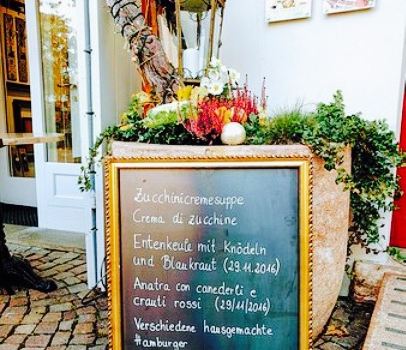 Zucchinicremesuppe
Crema di zucchine
Entenkeule mit Knödeln
und Blaukraut (29.11.2016)
Anatra con canederli e
crauti rossi (29/11/2016)
Verschiedene hausgemachte
#amburger